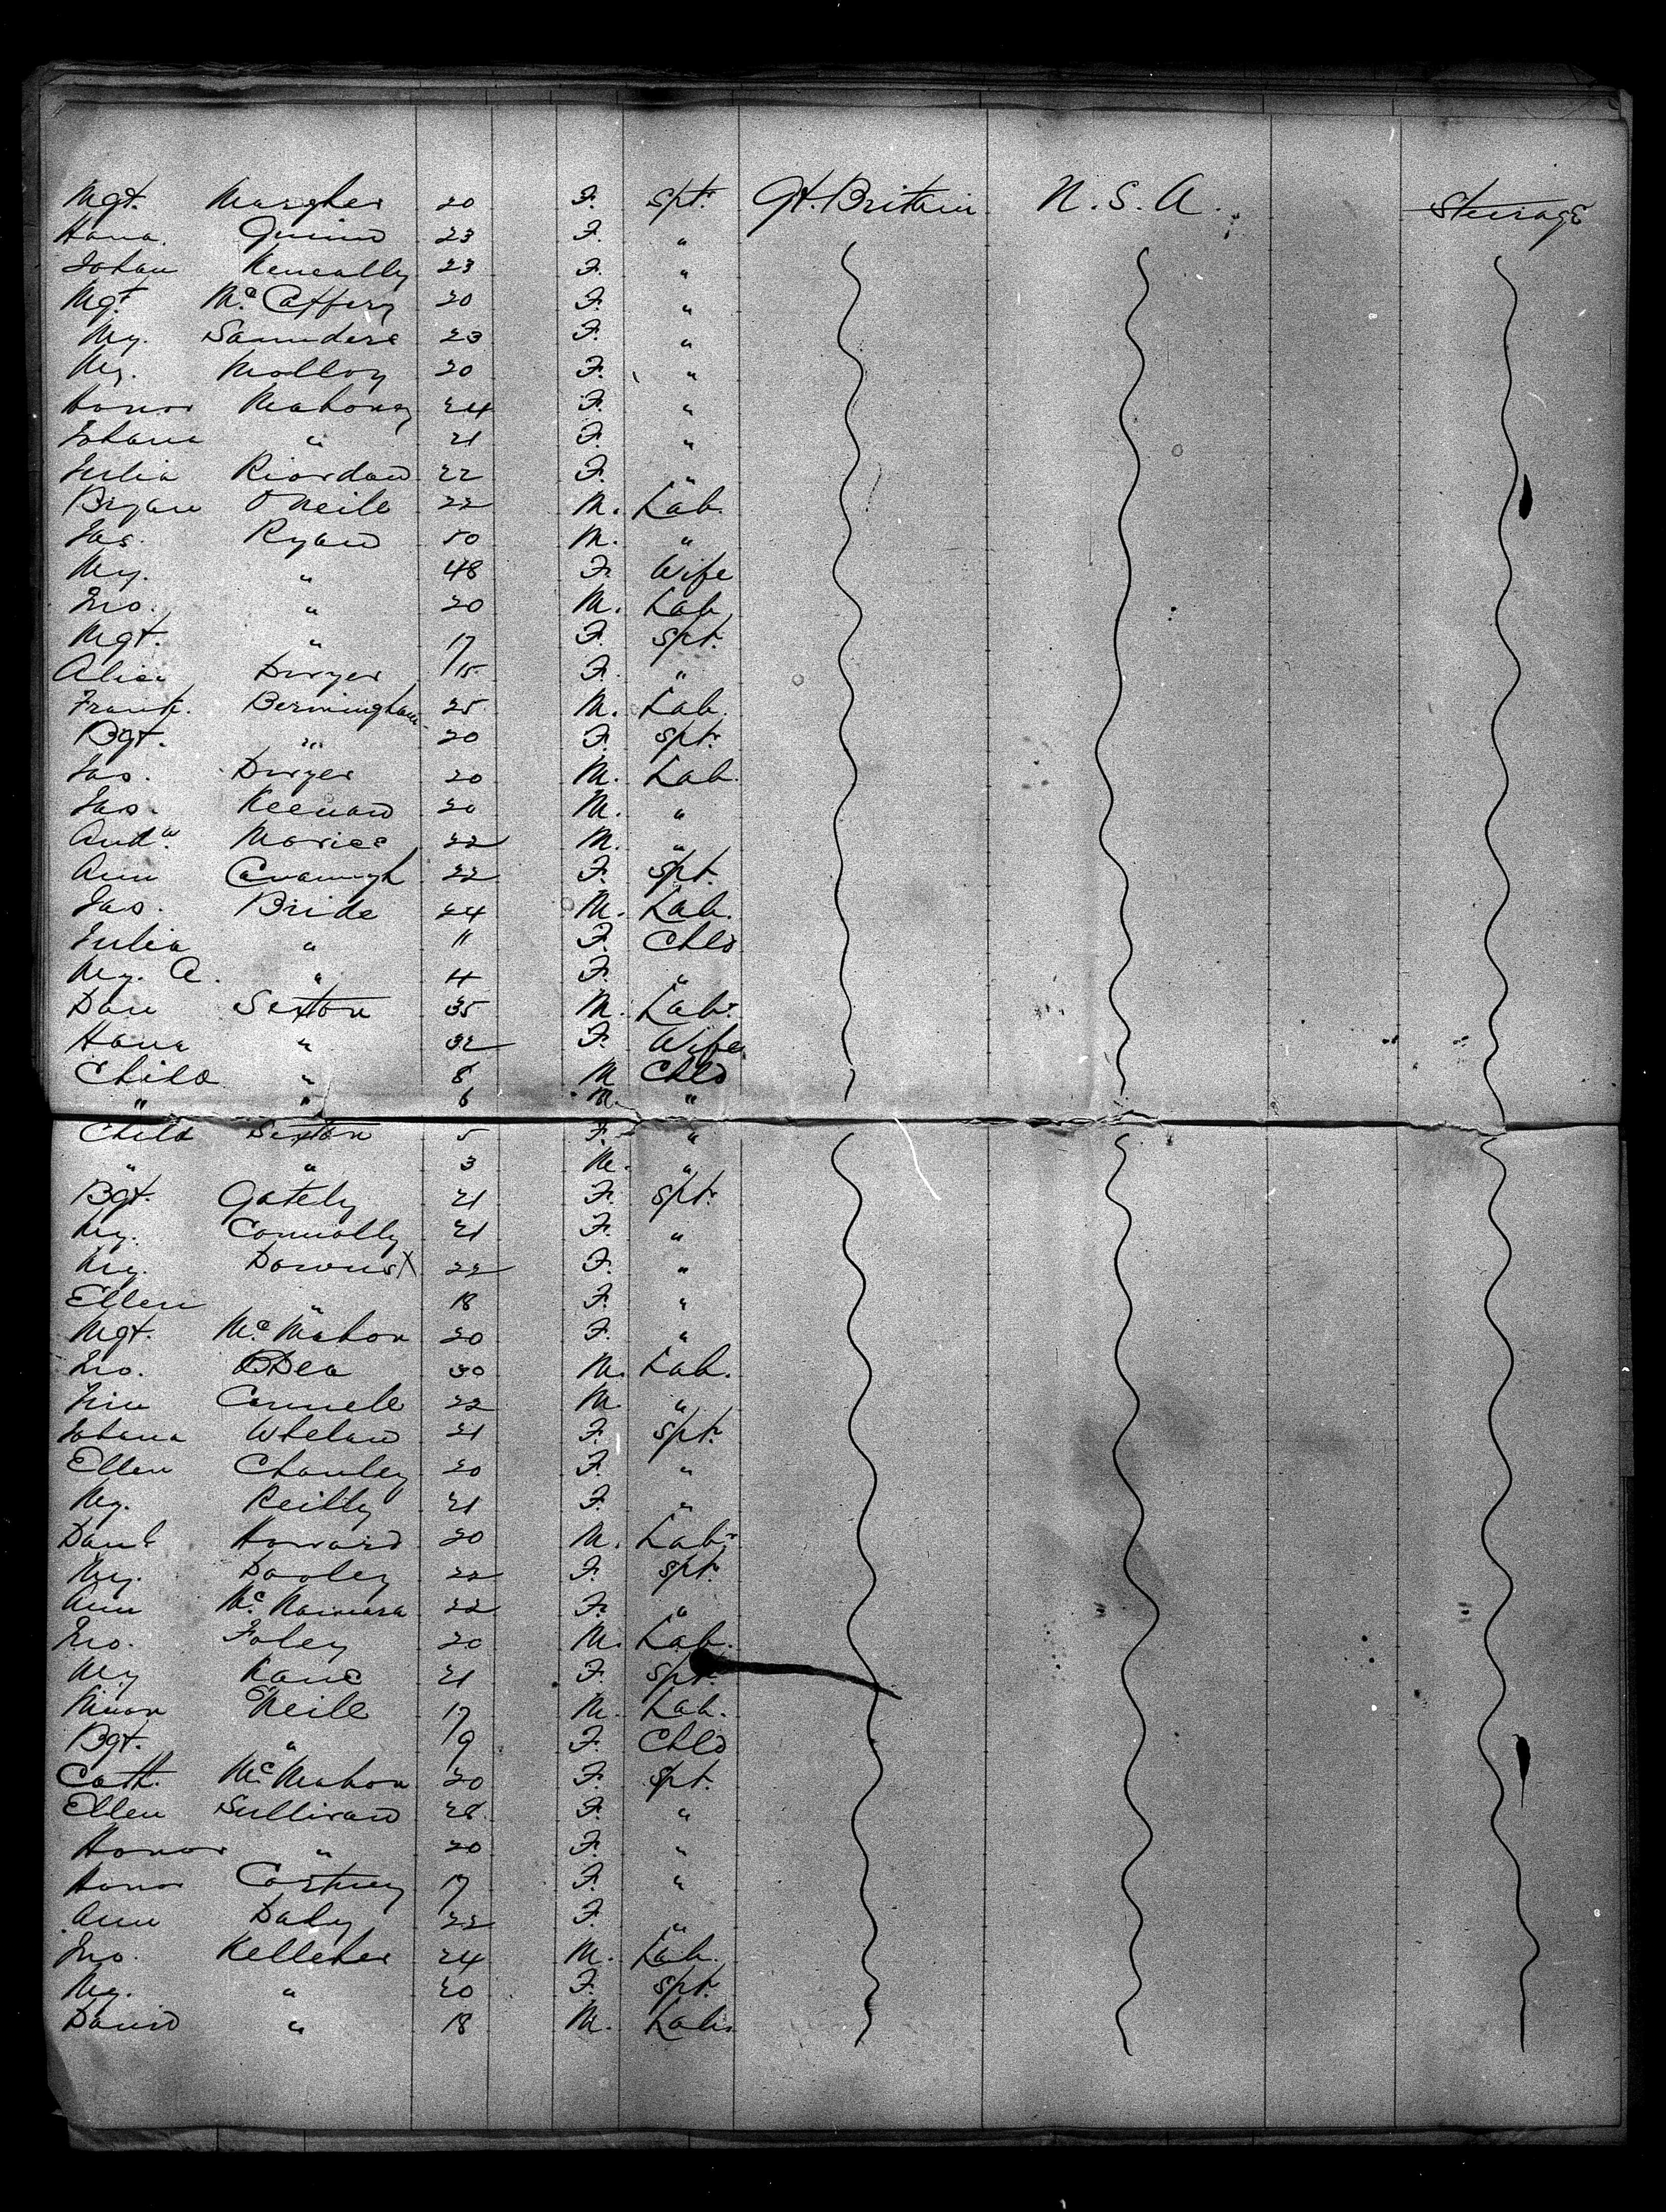 Mgt. 20 F. Spt. Gt. Britain U.S.A. Steerage
Hana. Quinn 23 F. "
Johan Keneally 23 F. "
Mgt. McCaffery 20 F. "
My. Saunders 23 F. "
My. Molloy 20 F. "
Honor Mahony 24 F. "
Johana " 21 F. "
Julia Riordan 22 F. "
Bryan O'Neill 22 M. Lab.
Jas. Ryan 50 M. "
My. " 48 F. Wife
Jno. " 20 M. Lab.
Mgt. " 17 F. Spt.
Alice Dwyer 15 F. "
Frank. Bermingham 25 M. Lab.
Bgt. " 20 F. Spt.
Jas. Dwyer 20 M. Lab.
Jas. Keenan 20 M. "
Andw. 22 M. "
Ann Cavanagh 22 F. Spt.
Jas. Bride 24 M. Lab.
Julia " 11 F. Chld
My. A. " 4 F. "
Dan Sexton 35 M. Lab.
Hana " 32 F. Wife
Child " 8 M Chld
" " 6 M. "
Child Sexton 5 F. "
" " 3 M. "
Bgt. Gately 21 F. Spt.
My. Connolly 21 F. "
My. Downs X 22 F. "
Ellen " 18 F. "
Mgt. McMahon 20 F. "
Jno. O'Dea 30 M. Lab.
Jim Connell 22 M. "
Johana Whelan 21 F. Spt.
Ellen 20 F. "
My. Reilly 21 F. "
Danl Howard 20 M. Lab.
My. Dooley 22 F. Spt.
Ann McNamara 22 F. "
Jno. Foley 20 M. Lab.
My Kane 21 F. Spt.
Neill 17 M. Lab.
Bgt. " 9 F. Chld
Cath. McMahon 20 F. Spt.
Ellen Sullivan 28 F. "
Honor " 20 F. "
Honor Cortney 17 F. "
Ann Daly 22 F. "
Jno. Kelleher 24 M. Lab.
My. " 20 F. Spt.
David " 18 M. Lab.